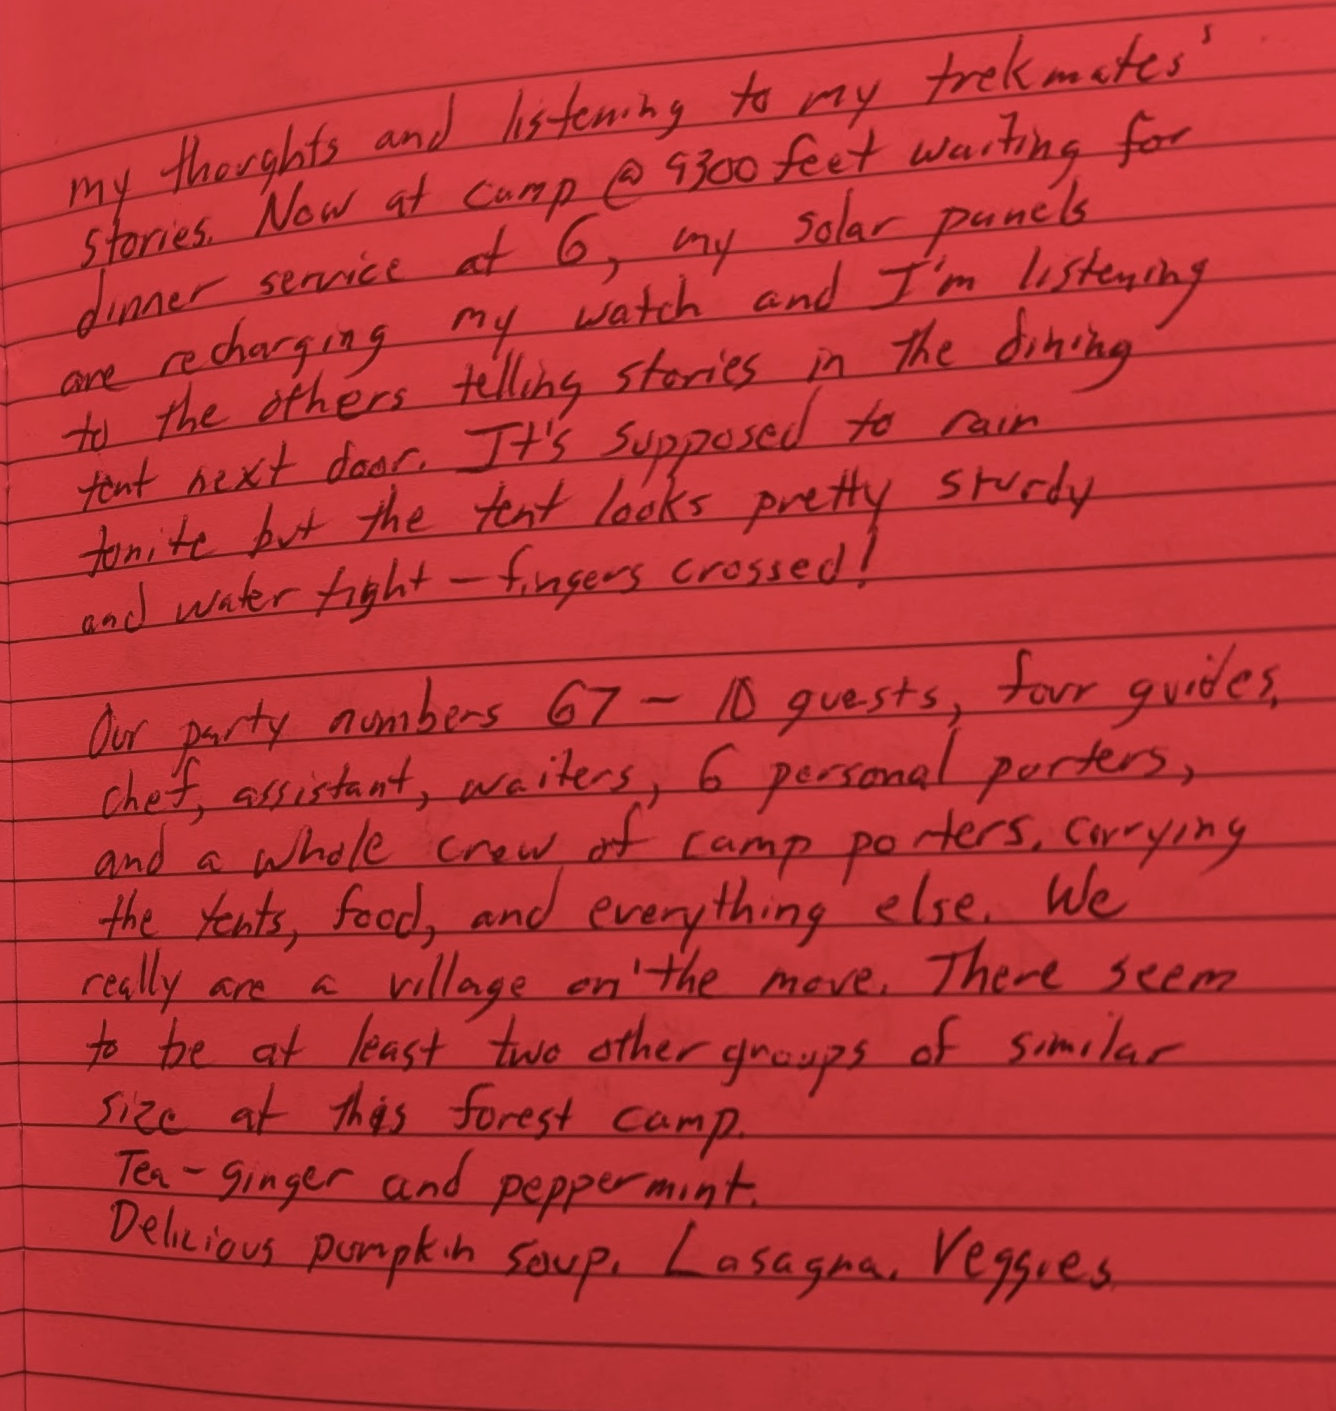 my thoughts and listening to my trekmates'
stories. Now at camp @ 9300 feet waiting for
dinner service at 6, my solar panels
are recharging my watch and I'm listening
to the others telling stories in the dining
tent next door. It's supposed to rain
tonite but the tent looks pretty sturdy
and water tight - fingers crossed!
Our party numbers 67 - 10 guests, four guides,
chef, assistant, waiters, 6 personal porters,
and a whole crew of camp porters. carrying
the tents, food, and everything else. We
really are a village on the move. There seem
to be at least two other groups of similar
size at this forest camp.
Tea - ginger and peppermint.
Delicious pumpkin soup. Lasagna. Veggies.